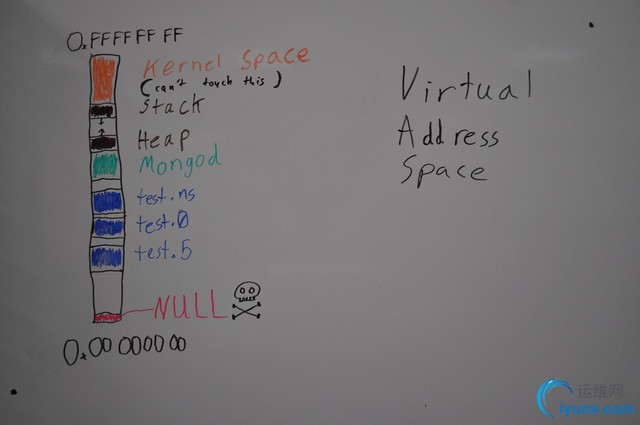 0xFFFFFFFF
Kernel Space
(can't touch this)
Stack
Heap
Mongod
test.ns
test.0
test.5
NULL
0x00000000
Virtual
Address
Space
运维网
iyunv.com